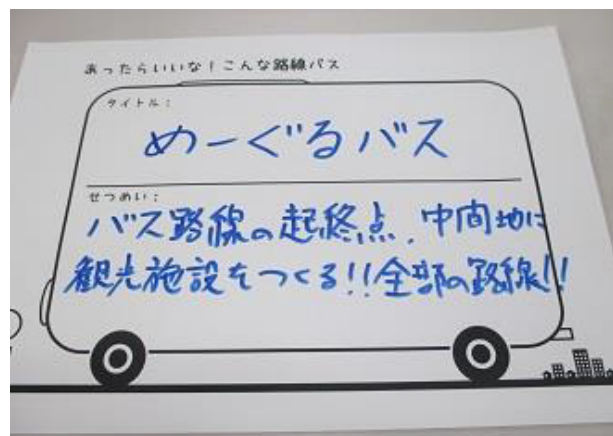 あったらいいな！こんな路線バス
タイトル：
めーぐるバス
せつめい：
バス路線の起終点、中間地に
観光施設をつくる!!全部の路線!!